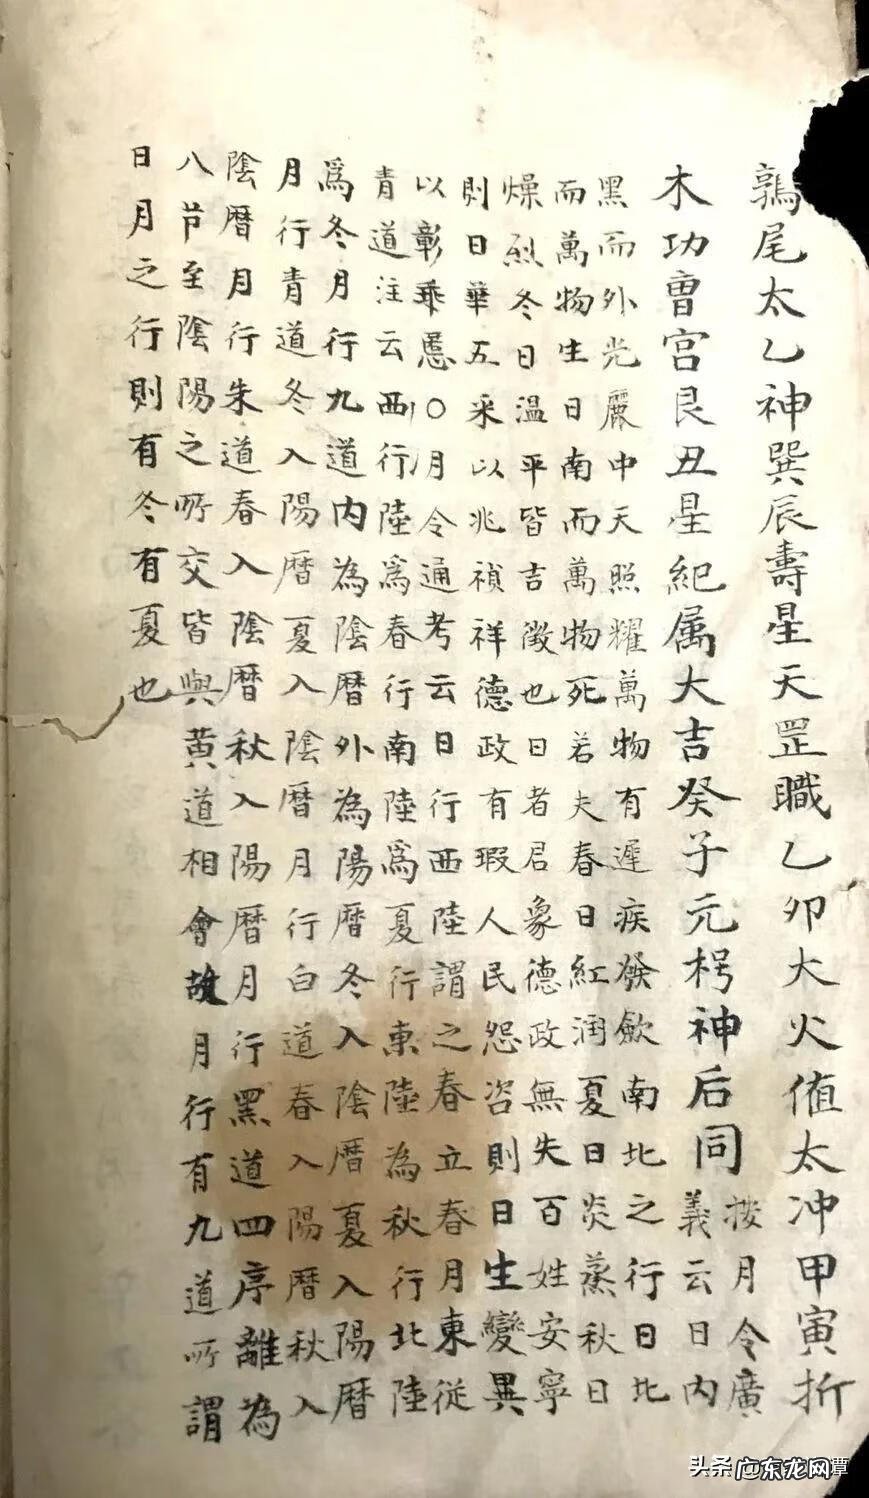 鶉尾太乙神巽辰壽星天罡職乙卯大火值太冲甲寅折
木功曺宫艮丑星紀属大吉癸子元枵神后同
按月令廣
義云日内
黑而外光麗中天照耀萬物有遲疾發歛南北之行日北
而萬物生日南而萬物死若夫春日紅潤夏日炎蒸秋日
燥烈冬日温平皆吉徵也日者君象德政無失百姓安寧
則日華五采以兆禎祥德政有瑕人民怨咨則日生變異
以彰乖慝〇月令通考云日行西陸謂之春立春月東従
青道注云西行陸爲春行南陸爲夏行東陸為秋行北陸
爲冬月行九道内為陰暦外為陽暦冬入陰暦夏入陽暦
月行青道冬入陽暦夏入陰暦月行白道春入陽暦秋入
陰暦月行朱道春入陰暦秋入陽暦月行黑道四序離為
八节至陰陽之所交皆與黄道相會故月行有九道所謂
日月之行則有冬有夏也
头条
东龙网
潭